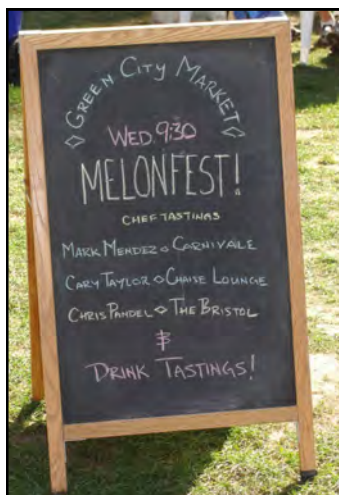 GREEN CITY MARKET
WED. 9:30
MELONFEST!
CHEF TASTINGS
MARK MENDEZ ◇ CARNIVALE
CARY TAYLOR ◇ CHAISE LOUNGE
CHRIS PANDEL ◇ THE BRISTOL
&
DRINK TASTINGS!